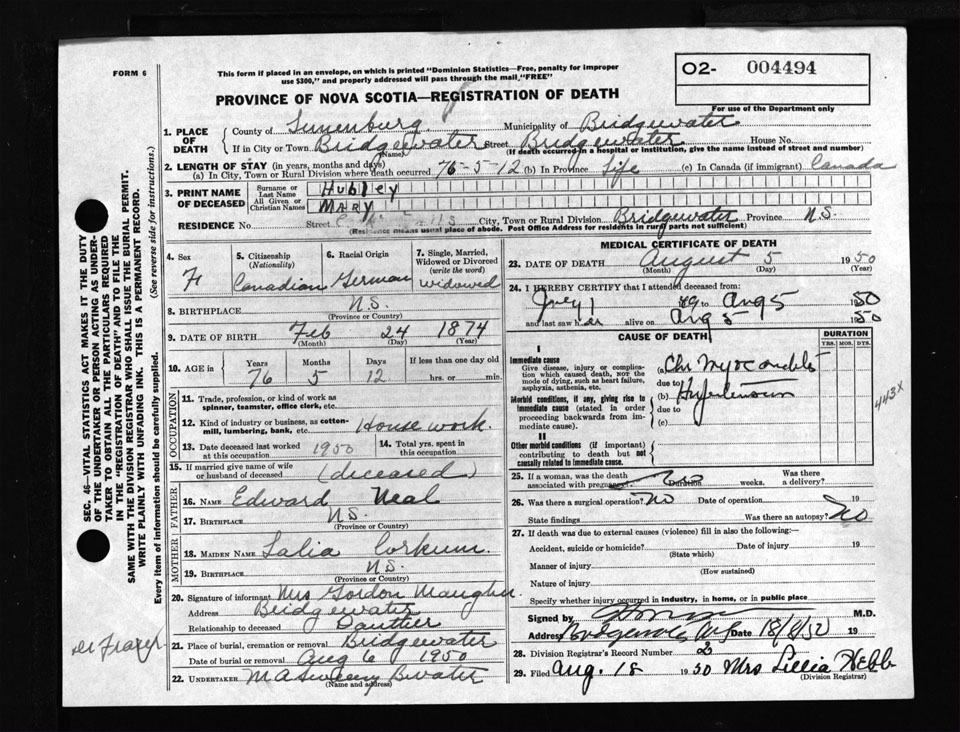 FORM 6
This form if placed in an envelope, on which is printed "Dominion Statistics—Free, penalty for improper use $300," and properly addressed will pass through the mail "FREE"
O2- 004494
For use of the Department only
PROVINCE OF NOVA SCOTIA—REGISTRATION OF DEATH
SEC. 46—VITAL STATISTICS ACT MAKES IT THE DUTY
OF THE UNDERTAKER OR PERSON ACTING AS UNDER-
TAKER TO OBTAIN ALL THE PARTICULARS REQUIRED
IN THE "REGISTRATION OF DEATH" AND TO FILE THE
SAME WITH THE DIVISION REGISTRAR WHO SHALL ISSUE THE BURIAL PERMIT.
WRITE PLAINLY WITH UNFADING INK. THIS IS A PERMANENT RECORD.
Every item of information should be carefully supplied. (See reverse side for instructions.)
1. PLACE OF DEATH County of Lunenburg Municipality of Bridgewater
If in City or Town Bridgewater Street Bridgewater House No.
(Name) (If death occurred in a hospital or institution, give the name instead of street and number)
2. LENGTH OF STAY (in years, months and days)
(a) In City, Town or Rural Division where death occurred 76-5-12 (b) In Province Life (c) In Canada (if immigrant) Canada
3. PRINT NAME OF DECEASED Surname or Last Name Hubley
All Given or Christian Names MARY
RESIDENCE No. Street City, Town or Rural Division Bridgewater Province N.S.
(Residence means usual place of abode. Post Office Address for residents in rural parts not sufficient)
4. Sex F
5. Citizenship (Nationality) Canadian
6. Racial Origin German
7. Single, Married, Widowed or Divorced (write the word) widowed
8. BIRTHPLACE N.S.
(Province or Country)
9. DATE OF BIRTH Feb 24 1874
(Month) (Day) (Year)
10. AGE in Years 76 Months 5 Days 12 If less than one day old hrs. or min.
OCCUPATION
11. Trade, profession, or kind of work as spinner, teamster, office clerk, etc.
12. Kind of industry or business, as cotton-mill, lumbering, bank, etc. House work.
13. Date deceased last worked at this occupation 1950
14. Total yrs. spent in this occupation
15. If married give name of wife or husband of deceased (deceased)
FATHER
16. NAME Edward Neal
17. BIRTHPLACE N.S.
(Province or Country)
MOTHER
18. MAIDEN NAME Salia Corkum.
19. BIRTHPLACE N.S.
(Province or Country)
20. Signature of informant Mrs Gordon Maugher
Address Bridgewater
Relationship to deceased Dauther
21. Place of burial, cremation or removal Bridgewater
Date of burial or removal Aug 6 1950
22. UNDERTAKER M A Sweeny Bwater
(Name and address)
MEDICAL CERTIFICATE OF DEATH
23. DATE OF DEATH August 5 1950
(Month) (Day) (Year)
24. I HEREBY CERTIFY that I attended deceased from:
to Aug 5 1950
and last saw her alive on Aug 5 1950
CAUSE OF DEATH
DURATION
YRS. MOS. DYS.
I
Immediate cause
Give disease, injury or complication which caused death, not the mode of dying, such as heart failure, asphyxia, asthenia, etc.
(a) Chr Myocarditis
due to
Morbid conditions, if any, giving rise to immediate cause (stated in order proceeding backwards from immediate cause).
(b) Hypertension
due to
(c)
443X
II
Other morbid conditions (if important) contributing to death but not causally related to immediate cause.
25. If a woman, was the death associated with pregnancy? No Duration weeks. Was there a delivery?
26. Was there a surgical operation? No Date of operation 19
State findings Was there an autopsy? No
27. If death was due to external causes (violence) fill in also the following:—
Accident, suicide or homicide? Date of injury 19
(State which)
Manner of injury
(How sustained)
Nature of injury
Specify whether injury occurred in industry, in home, or in public place
Signed by M.D.
Address Bridgewater NS Date 18/8/50 19
28. Division Registrar's Record Number 2
29. Filed Aug. 18 1950 Mrs Lillia Hebb
(Division Registrar)